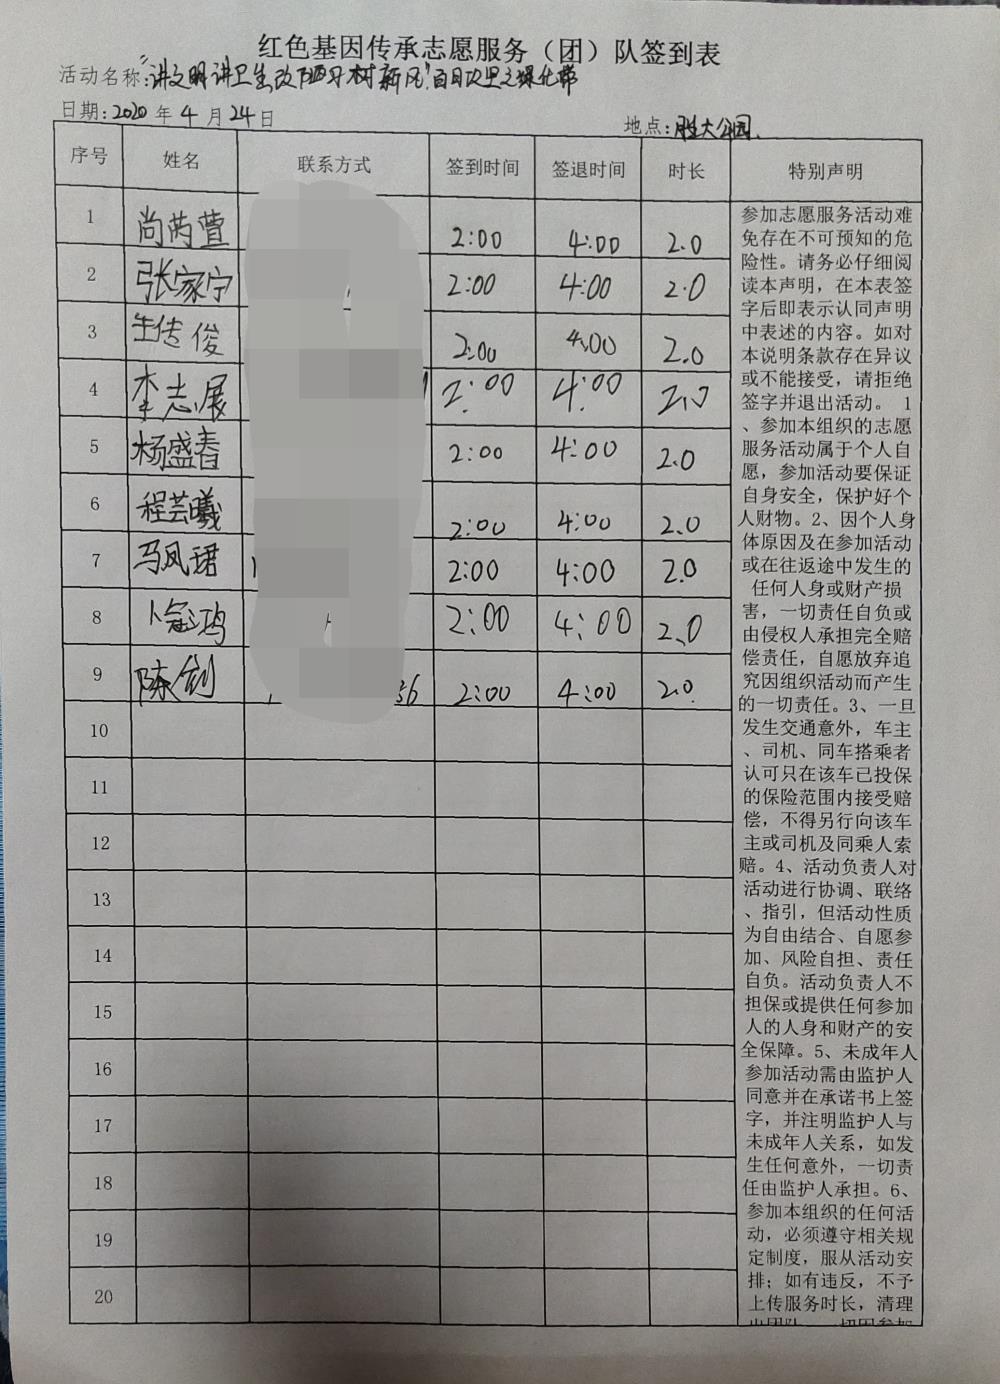 红色基因传承志愿服务（团）队签到表
活动名称:“讲文明讲卫生改陋习树新风”百日攻坚之绿化带
日期:2020年4月24日
地点:胜大公园.
序号 姓名 联系方式 签到时间 签退时间 时长 特别声明
1 尚芮萱 2:00 4:00 2.0
2 张家宁 2:00 4:00 2.0
3 生传俊 2:00 4:00 2.0
4 李志展 2:00 4:00 2.0
5 杨盛春 2:00 4:00 2.0
6 程芸曦 2:00 4:00 2.0
7 马凤珺 2:00 4:00 2.0
8 卜冠鸿 2:00 4:00 2.0
9 陈剑 36 2:00 4:00 2.0
10
11
12
13
14
15
16
17
18
19
20
参加志愿服务活动难
免存在不可预知的危
险性。请务必仔细阅
读本声明，在本表签
字后即表示认同声明
中表述的内容。如对
本说明条款存在异议
或不能接受，请拒绝
签字并退出活动。 1
、参加本组织的志愿
服务活动属于个人自
愿，参加活动要保证
自身安全，保护好个
人财物。2、因个人身
体原因及在参加活动
或在往返途中发生的
任何人身或财产损
害，一切责任自负或
由侵权人承担完全赔
偿责任，自愿放弃追
究因组织活动而产生
的一切责任。3、一旦
发生交通意外，车主
、司机、同车搭乘者
认可只在该车已投保
的保险范围内接受赔
偿，不得另行向该车
主或司机及同乘人索
赔。4、活动负责人对
活动进行协调、联络
、指引，但活动性质
为自由结合、自愿参
加、风险自担、责任
自负。活动负责人不
担保或提供任何参加
人的人身和财产的安
全保障。5、未成年人
参加活动需由监护人
同意并在承诺书上签
字，并注明监护人与
未成年人关系，如发
生任何意外，一切责
任由监护人承担。6、
参加本组织的任何活
动，必须遵守相关规
定制度，服从活动安
排；如有违反，不予
上传服务时长，清理